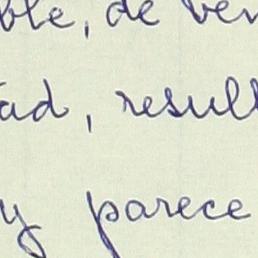 ble, de ver
ad, result
y parece